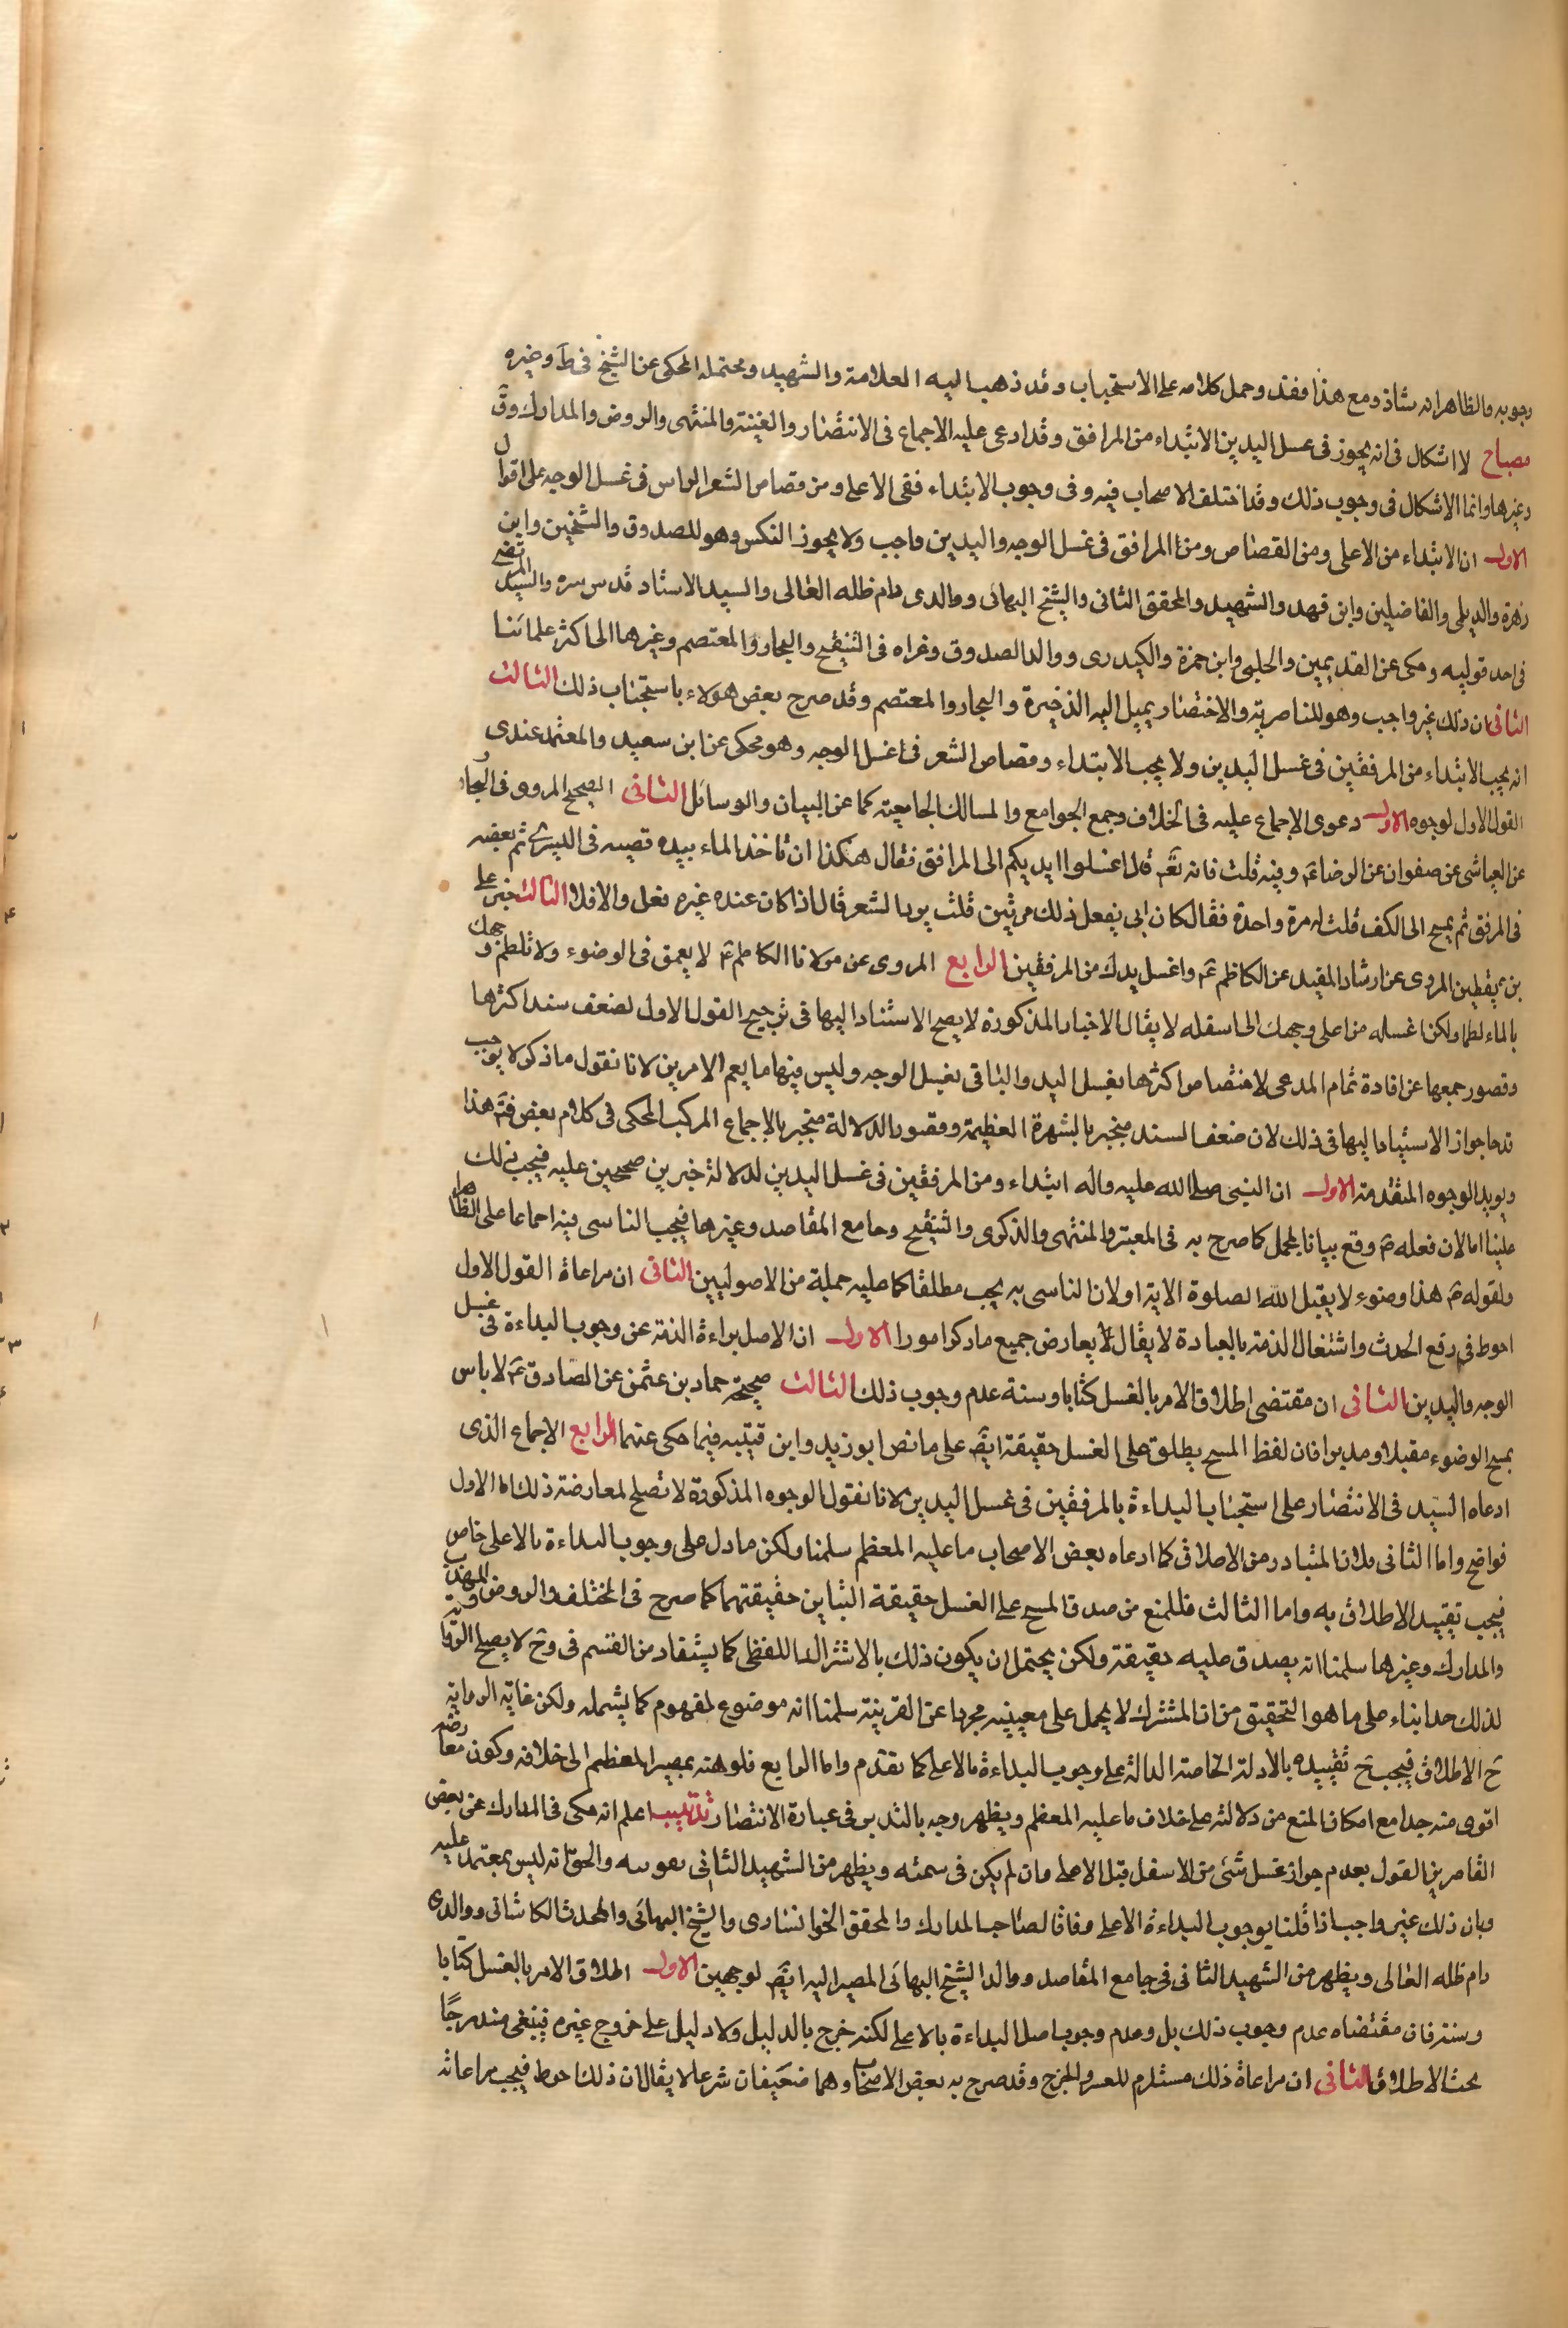 وجوبه والظاهر انه شاذ ومع هذا فقد وحمل كلامه على الاستحباب وقد ذهب اليه العلامة والشهيد ومحتمله المحكى عن الشيخ فى ط وغيره
مصباح لا اشكال فى انه يجوز فى غسل اليدين الابتداء من المرافق وقد ادعى عليه الاجماع فى الانتصار والغنية والمنتهى والروض والمدارك وق
وغيرها وانما الاشكال فى وجوب ذلك وقد اختلف الاصحاب فيه وفى وجوب الابتداء ففى الاعلى ومن قصاص الشعر الراس فى غسل الوجه على اقوال
الاول ان الابتداء من الاعلى ومن القصاص ومن المرافق فى غسل الوجه واليدين واجب ولا يجوز النكس وهو للصدوق والشيخين وابن
زهرة والديلى والفاضلين وابن فهد والشهيد والمحقق الثانى والشيخ البهائى ووالدى دام ظله العالى والسيد الاستاد قدس سره والسيد المرتضى
فى احد قوليه وحكى عن القديمين والحلبى وابن حمزة والكيدرى ووالد الصدوق وعزاه فى التنقيح والبحار والمعتصم وغيرها الى اكثر علمائنا
الثانى ان ذلك غير واجب وهو للناصرية والاختصار يميل اليه الذخيرة والبحار والمعتصم وقد صرح بعض هولاء باستحباب ذلك الثالث
انه يجب الابتداء من المرفقين فى غسل اليدين ولا يجب الابتداء وقصاص الشعر فى غسل الوجه وهو محكى عن ابن سعيد والمعتمد عندى
القول الاول لوجوه الاول دعوى الاجماع عليه فى الخلاف وجمع الجوامع والمسالك الجامعية كما عن البيان والوسائل الثانى الصحيح المروى فى البحار
عن العياشى عن صفوان عن الرضا ع وفيه قلت فانه تعم قال اغسلوا ايديكم الى المرافق فقال هكذا ان تاخذ الماء بيده فيصبه فى اليسرى ثم بعضه
فى المرفق ثم يمسح الى الكف قلت له مرة واحدة فقال كان ابى يفعل ذلك مرتين قلت يرد الشعر قال اذا كان عنده غيره فعل والا فلا الثالث خبر على
بن يقطين المروى عن ارشاد المفيد عن الكاظم ع واغسل يدك من المرفقين الرابع المروى عن مولانا الكاظم ع لا يعمق فى الوضوء ولا تلطم وجهك
بالماء لطما ولكن اغسله من اعلى وجهك الى اسفله لا يقال الاخبار المذكورة لا يصح الاستناد اليها فى ترجيح القول الاول لضعف سند اكثرها
وقصور جمعها عن افادة تمام المدعى لاختصاص اكثرها بغسل اليد والباقى بغسل الوجه وليس فيها ما يعم الامرين لانا نقول ما ذكر لا يوجب
قدحا جواز الاستناد اليها فى ذلك لان ضعف السند منجبر بالشهرة العظيمة وقصور الدلالة منجبر بالاجماع المركب المحكى فى كلام بعض فتم هذا
ويويد الوجوه المتقدمة الاول ان النبى صلى الله عليه واله ابتداء ومن المرفقين فى غسل اليدين لدلالة خبرين صحيحين عليه فيجب ذلك
علينا اما لان فعله ع وقع بيانا للمجمل كما صرح به فى المعتبر والمنتهى والذكرى والتنقيح وجامع المقاصد وغيرها فيجب التاسى فيه اجماعا على الظاهر
ولقوله ع هذا وضوء لا يقبل الله الصلوة الا به او لان التاسى به يجب مطلقا كما عليه جملة من الاصوليين الثانى ان مراعاة القول الاول
احوط فى رفع الحدث واشتغال الذمة بالعبادة لا يقال لا يعارض جميع ما ذكر امورا الاول ان الاصل براءة الذمة عن وجوب البداءة فى غسل
الوجه واليدين الثانى ان مقتضى اطلاق الامر بالغسل كتابا وسنة عدم وجوب ذلك الثالث صحيحة حماد بن عثمن عن الصادق ع لا باس
بمسح الوضوء مقبلا ومدبرا فان لفظ المسح يطلق على الغسل حقيقة ايضا على ما نص ابو زيد وابن قتيبه فيما حكى عنهما الرابع الاجماع الذى
ادعاه السيد فى الانتصار على استحباب البداءة بالمرفقين فى غسل اليدين لانا نقول الوجوه المذكورة لا تصلح لمعارضة ذلك اما الاول
فواضح واما الثانى فلان المتبادر من الاطلاق كما ادعاه بعض الاصحاب ما عليه المعظم سلمنا ولكن ما دل على وجوب البداءة بالاعلى خاص
فيجب تقييد الاطلاق به واما الثالث فللمنع من صدق المسح على الغسل حقيقة التباين حقيقتهما كما صرح فى المختلف والروض والمهذب
والمدارك وغيرها سلمنا انه يصدق عليه حقيقة ولكن يحتمل ان يكون ذلك بالاشتراك اللفظى كما يستفاد من القسم فى وح لا يصلح الرواية
لذلك حدا بناء على ما هو التحقيق من ان المشترك لا يحمل على معنييه مجردا عن القرينة سلمنا انه موضوع لمفهوم كما يشمله ولكن غاية الرواية
ح الاطلاق فيجب ح تقييده بالادلة الخاصة الدالة على وجوب البداءة بالاعلى كما تقدم واما الرابع فلوهنه بمصير المعظم الى خلافه وكون معارضه
اقوى منه جدا مع امكان المنع من دلالته على خلاف ما عليه المعظم ويظهر وجه بالتدبر فى عبارة الانتصار تذنيب اعلم انه حكى فى المدارك عن بعض
القاصرين القول بعدم جواز غسل شئ من الاسفل قبل الاعلى وان لم يكن فى سمته ويظهر من الشهيد الثانى والحق انه ليس بمعتمد عليه
وبان ذلك غير واجب اذا قلنا بوجوب البداءة الاعلى وفاقا لصاحب المدارك والمحقق الخوانسارى والشيخ البهائى والمحدث الكاشانى ووالدى
دام ظله العالى ويظهر من الشهيد الثانى فى جامع المقاصد ووالد الشيخ البهائى المصير اليه ايضا لوجهين الاول اطلاق الامر بالغسل كتابا
وسنة فان مقتضاه عدم وجوب ذلك بل وعدم وجوب اصل البداءة بالاعلى لكنه خرج بالدليل ولا دليل على خروج غيره فيبقى مندرجا
تحت الاطلاق الثانى ان مراعاة ذلك مستلزم للعسر والحرج وقد صرح به بعض الاصحاب وهما ضعيفان شرعا لا يقال ان ذلك احوط فيجب مراعاته